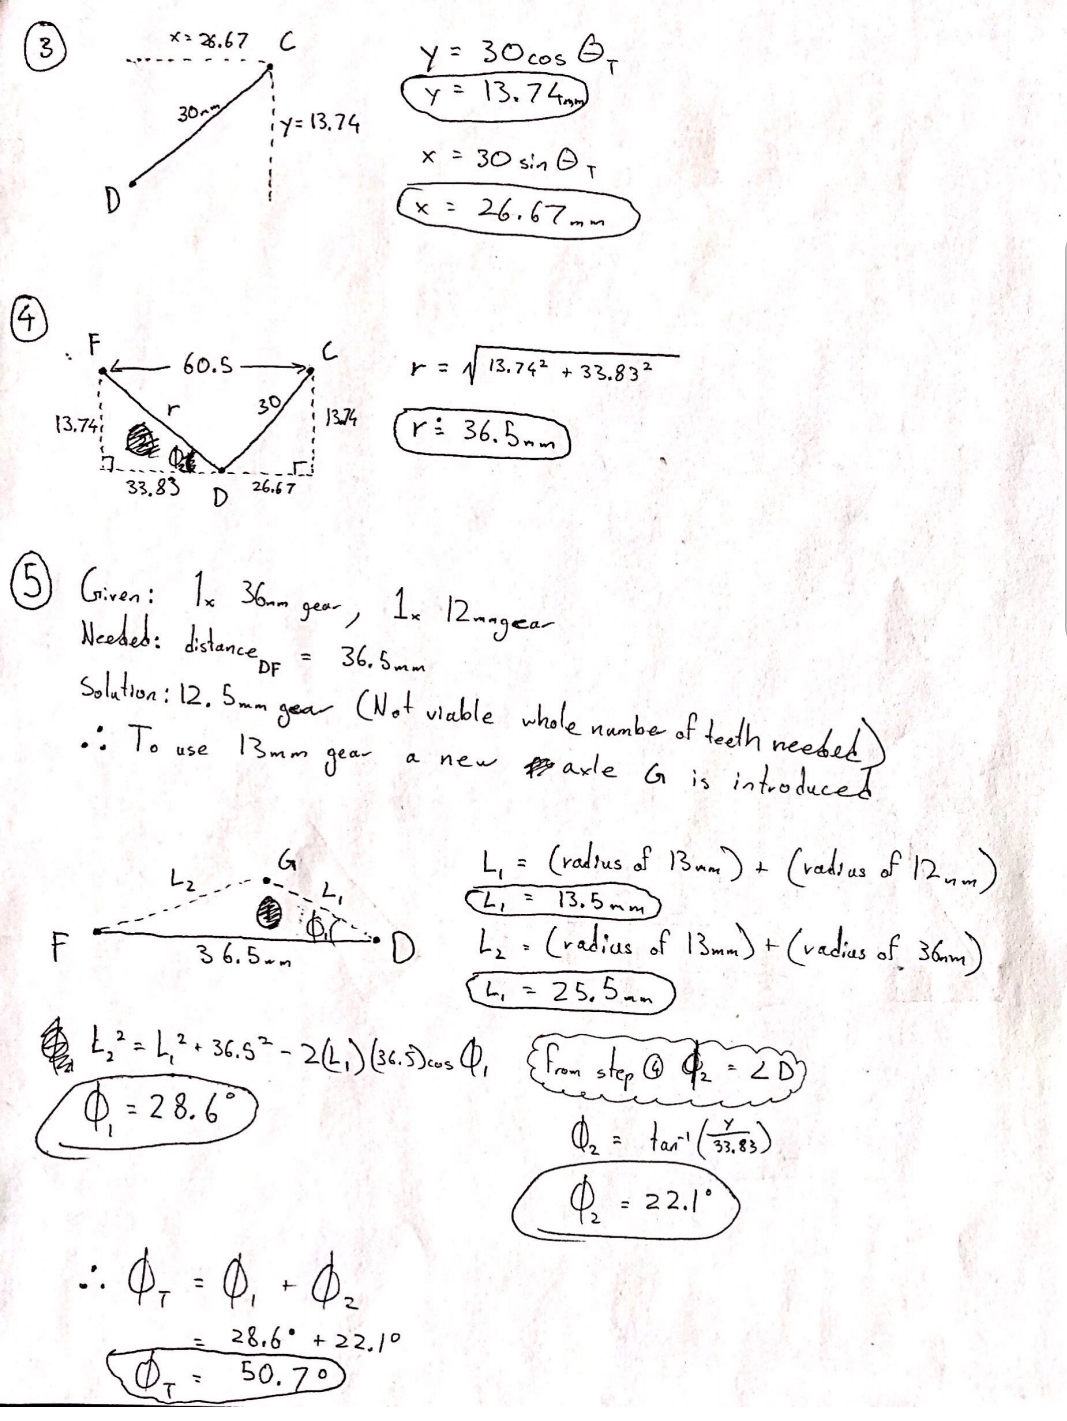 ③
x = 26.67
C
30mm
y = 13.74
D
y = 30 cos θT
y = 13.74mm
x = 30 sin θT
x = 26.67mm
④
F
60.5
C
r
30
13.74
13.74
Φ2
33.83
D
26.67
r = √13.74² + 33.83²
r ≐ 36.5mm
⑤ Given: 1x 36mm gear, 1x 12mm gear
Needed: distance DF = 36.5mm
Solution: 12.5mm gear (Not viable whole number of teeth needed)
∴ To use 13mm gear a new axle G is introduced
G
L2
L1
Φ1
F
D
36.5mm
L1 = (radius of 13mm) + (radius of 12mm)
L1 = 13.5mm
L2 = (radius of 13mm) + (radius of 36mm)
L1 = 25.5mm
L2² = L1² + 36.5² - 2(L1)(36.5)cos Φ1
Φ1 = 28.6°
From step ④ Φ2 = ∠D
Φ2 = tan⁻¹(y/33.83)
Φ2 = 22.1°
∴ ΦT = Φ1 + Φ2
= 28.6° + 22.1°
ΦT = 50.7°